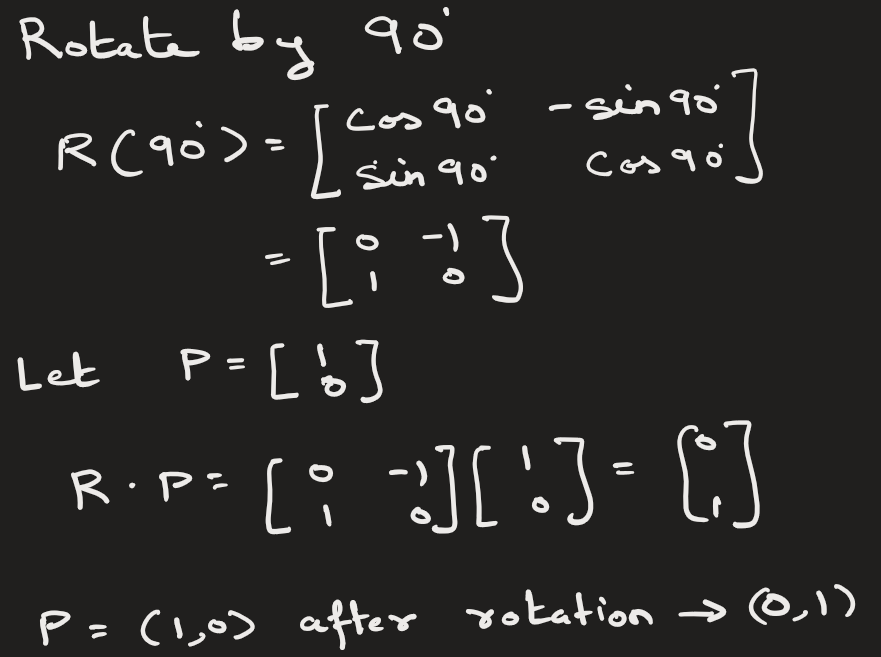 Rotate by 90°
R(90°) = [cos 90° -sin 90°
sin 90° cos 90°]
= [0 -1
1 0]
Let P = [1
0]
R · P = [0 -1
1 0] [1
0] = [0
1]
P = (1,0) after rotation → (0,1)